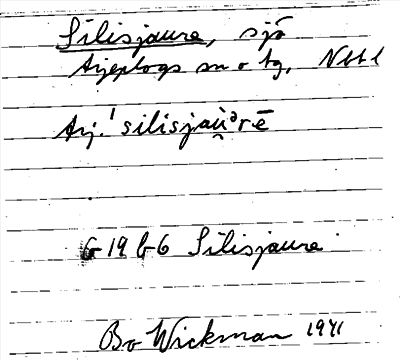 Silisjaure, sjö
Arjeplogs sn o tg, Nbtl
Arj. ˈsilisjau̯ᵊrē
G 19 b G Silisjaure
Bo Wickman 1971